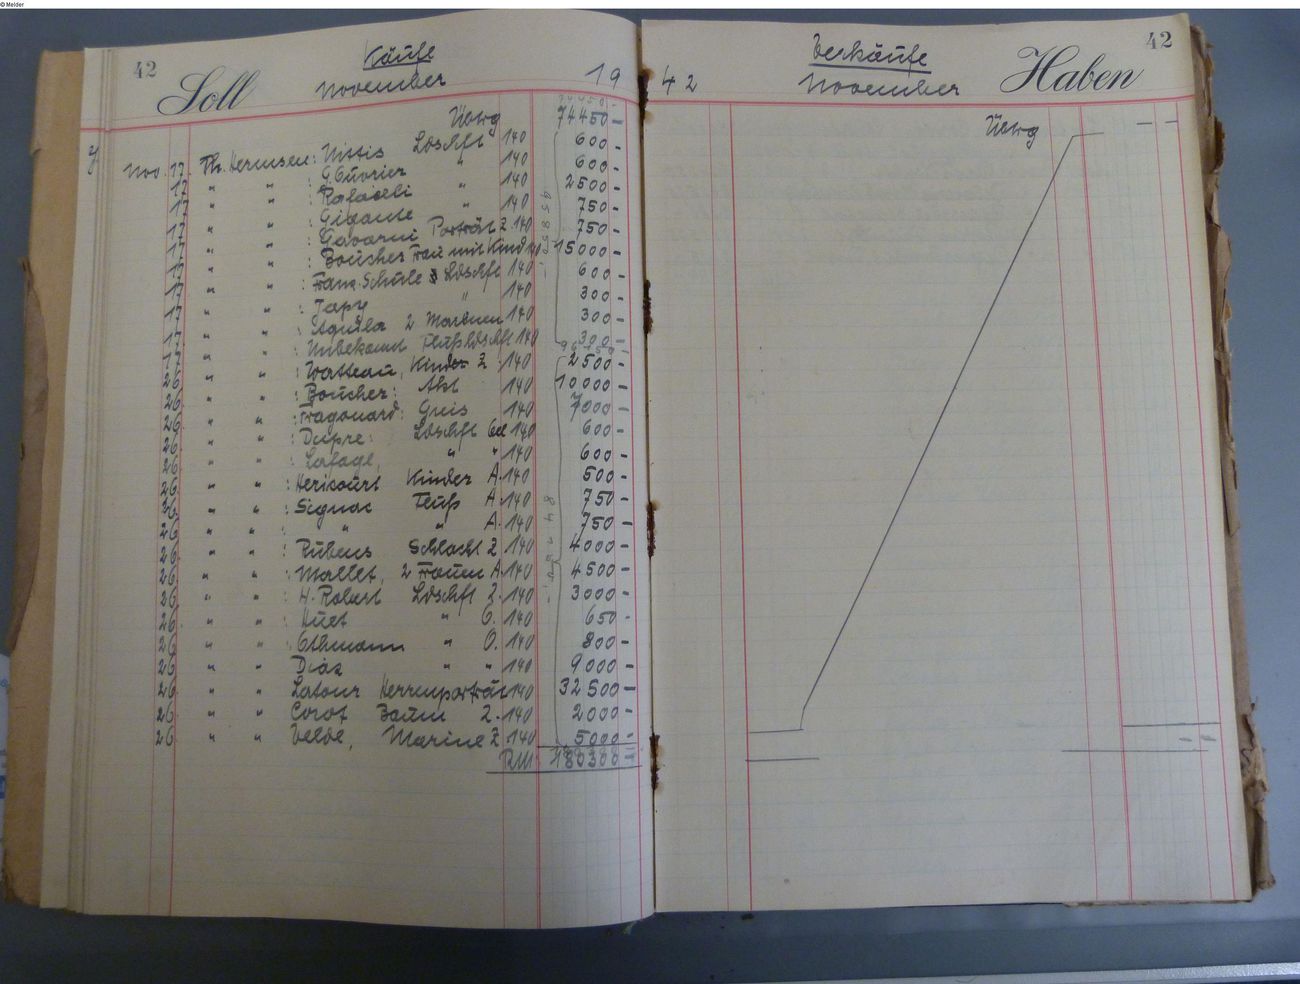 © Meider
42 Käufe
Soll November 19
74450.-
Übtrg 74450 -
Nov. 17 Th. Hermsen: Nittis Ldschft 140 600 -
17 " " : G. Cuvrier " 140 600 -
17 " " : Palaceli " 140 2500 -
17 " " : Gigante " 140 750 -
17 " " : Gavarni Porträt Z. 140 750 -
17 " " : Boucher Frau mit Kind 140 15000 -
17 " " : Franz. Schule Ldschft 140 600 -
17 " " : Japy " 140 300 -
17 " " : Aquila 2 Marinen 140 300 -
17 " " : Unbekannt Flußldschft 140 300 -
96150
" " : Watteau, Kinder Z. 140 2500 -
26 " " : Boucher: Akt 140 10000 -
26 " " : Fragonard: Greis 140 7000 -
26 " " : Dupre: Ldschft Oel 140 600 -
26 " " : Lafage, " " 140 600 -
26 " " : Hericourt Kinder A. 140 500 -
26 " " : Signac Fluß A. 140 750 -
26 " " : " " A. 140 750 -
26 " " : Rubens Schlacht Z. 140 4000 -
26 " " : Mallet, 2 Frauen A. 140 4500 -
26 " " : H. Robert Ldschft Z. 140 3000 -
26 " " Huet " O. 140 650 -
26 " " Othmann " O. 140 800 -
26 " " Diaz " " 140 9000 -
26 " " Latour Herrenporträt 140 32500 -
26 " " Corot Baum Z. 140 2000 -
26 " " Velde, Marine Z. 140 5000 -
RM. 180300 -
Verkäufe 42
42 November Haben
Übtrg - -
- -